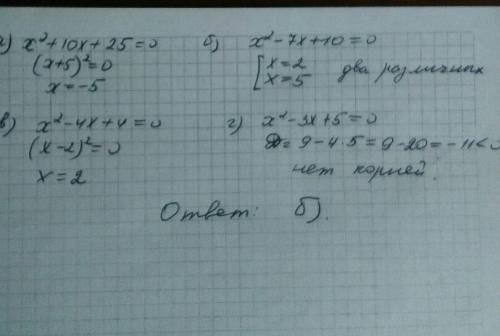 а) x²+10x+25=0
(x+5)²=0
x=-5
б) x²-7x+10=0
[x=2
x=5 два различных
в) x²-4x+4=0
(x-2)²=0
x=2
г) x²-3x+5=0
D=9-4·5=9-20=-11<0
нет корней.
Ответ: б).